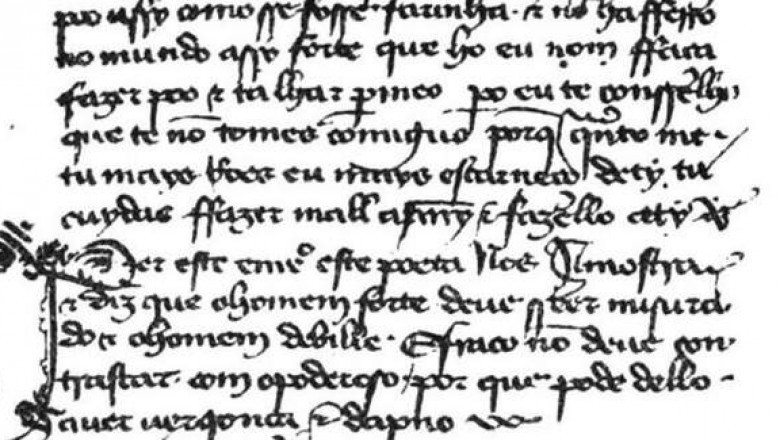 poo assy como sse fosse farinha. & nõ ha fferro
no mundo assy forte que ho eu nom ffaça
fazer poo & talhar per meo po eu te conssselho
que te nõ tomes comiguo porq̃ qñto me
tu mays eu mays escarneço de ty. tu
cuydas ffazer mall a mỹ & fazello a ty
Per este emxº este poeta nos amostra
& diz que o homem forte deve sseer misura
do & o homem debille. E fraco nõ deve con
trastar. com o poderoso / por que pode dello
aver vergonça & dapno